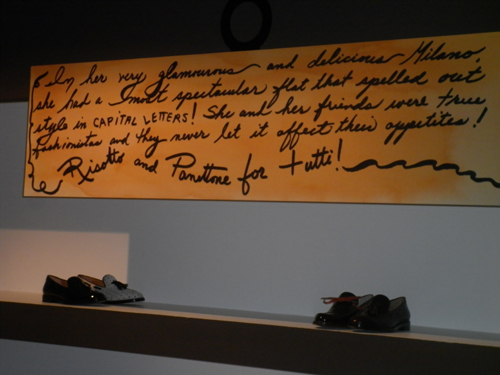 In her very glamourous and delicious Milano,
she had a most spectacular flat that spelled out
style in CAPITAL LETTERS! She and her friends were true
fashionistas and they never let it affect their appetites!
Risotto and Panettone for tutti!